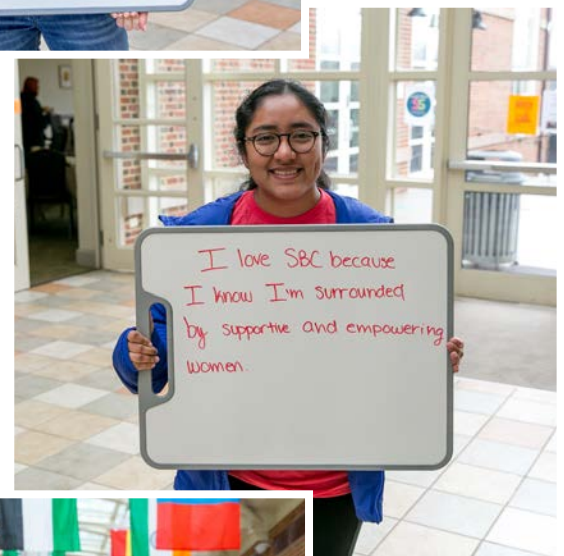 I love SBC because
I know I'm surrounded
by supportive and empowering
women.